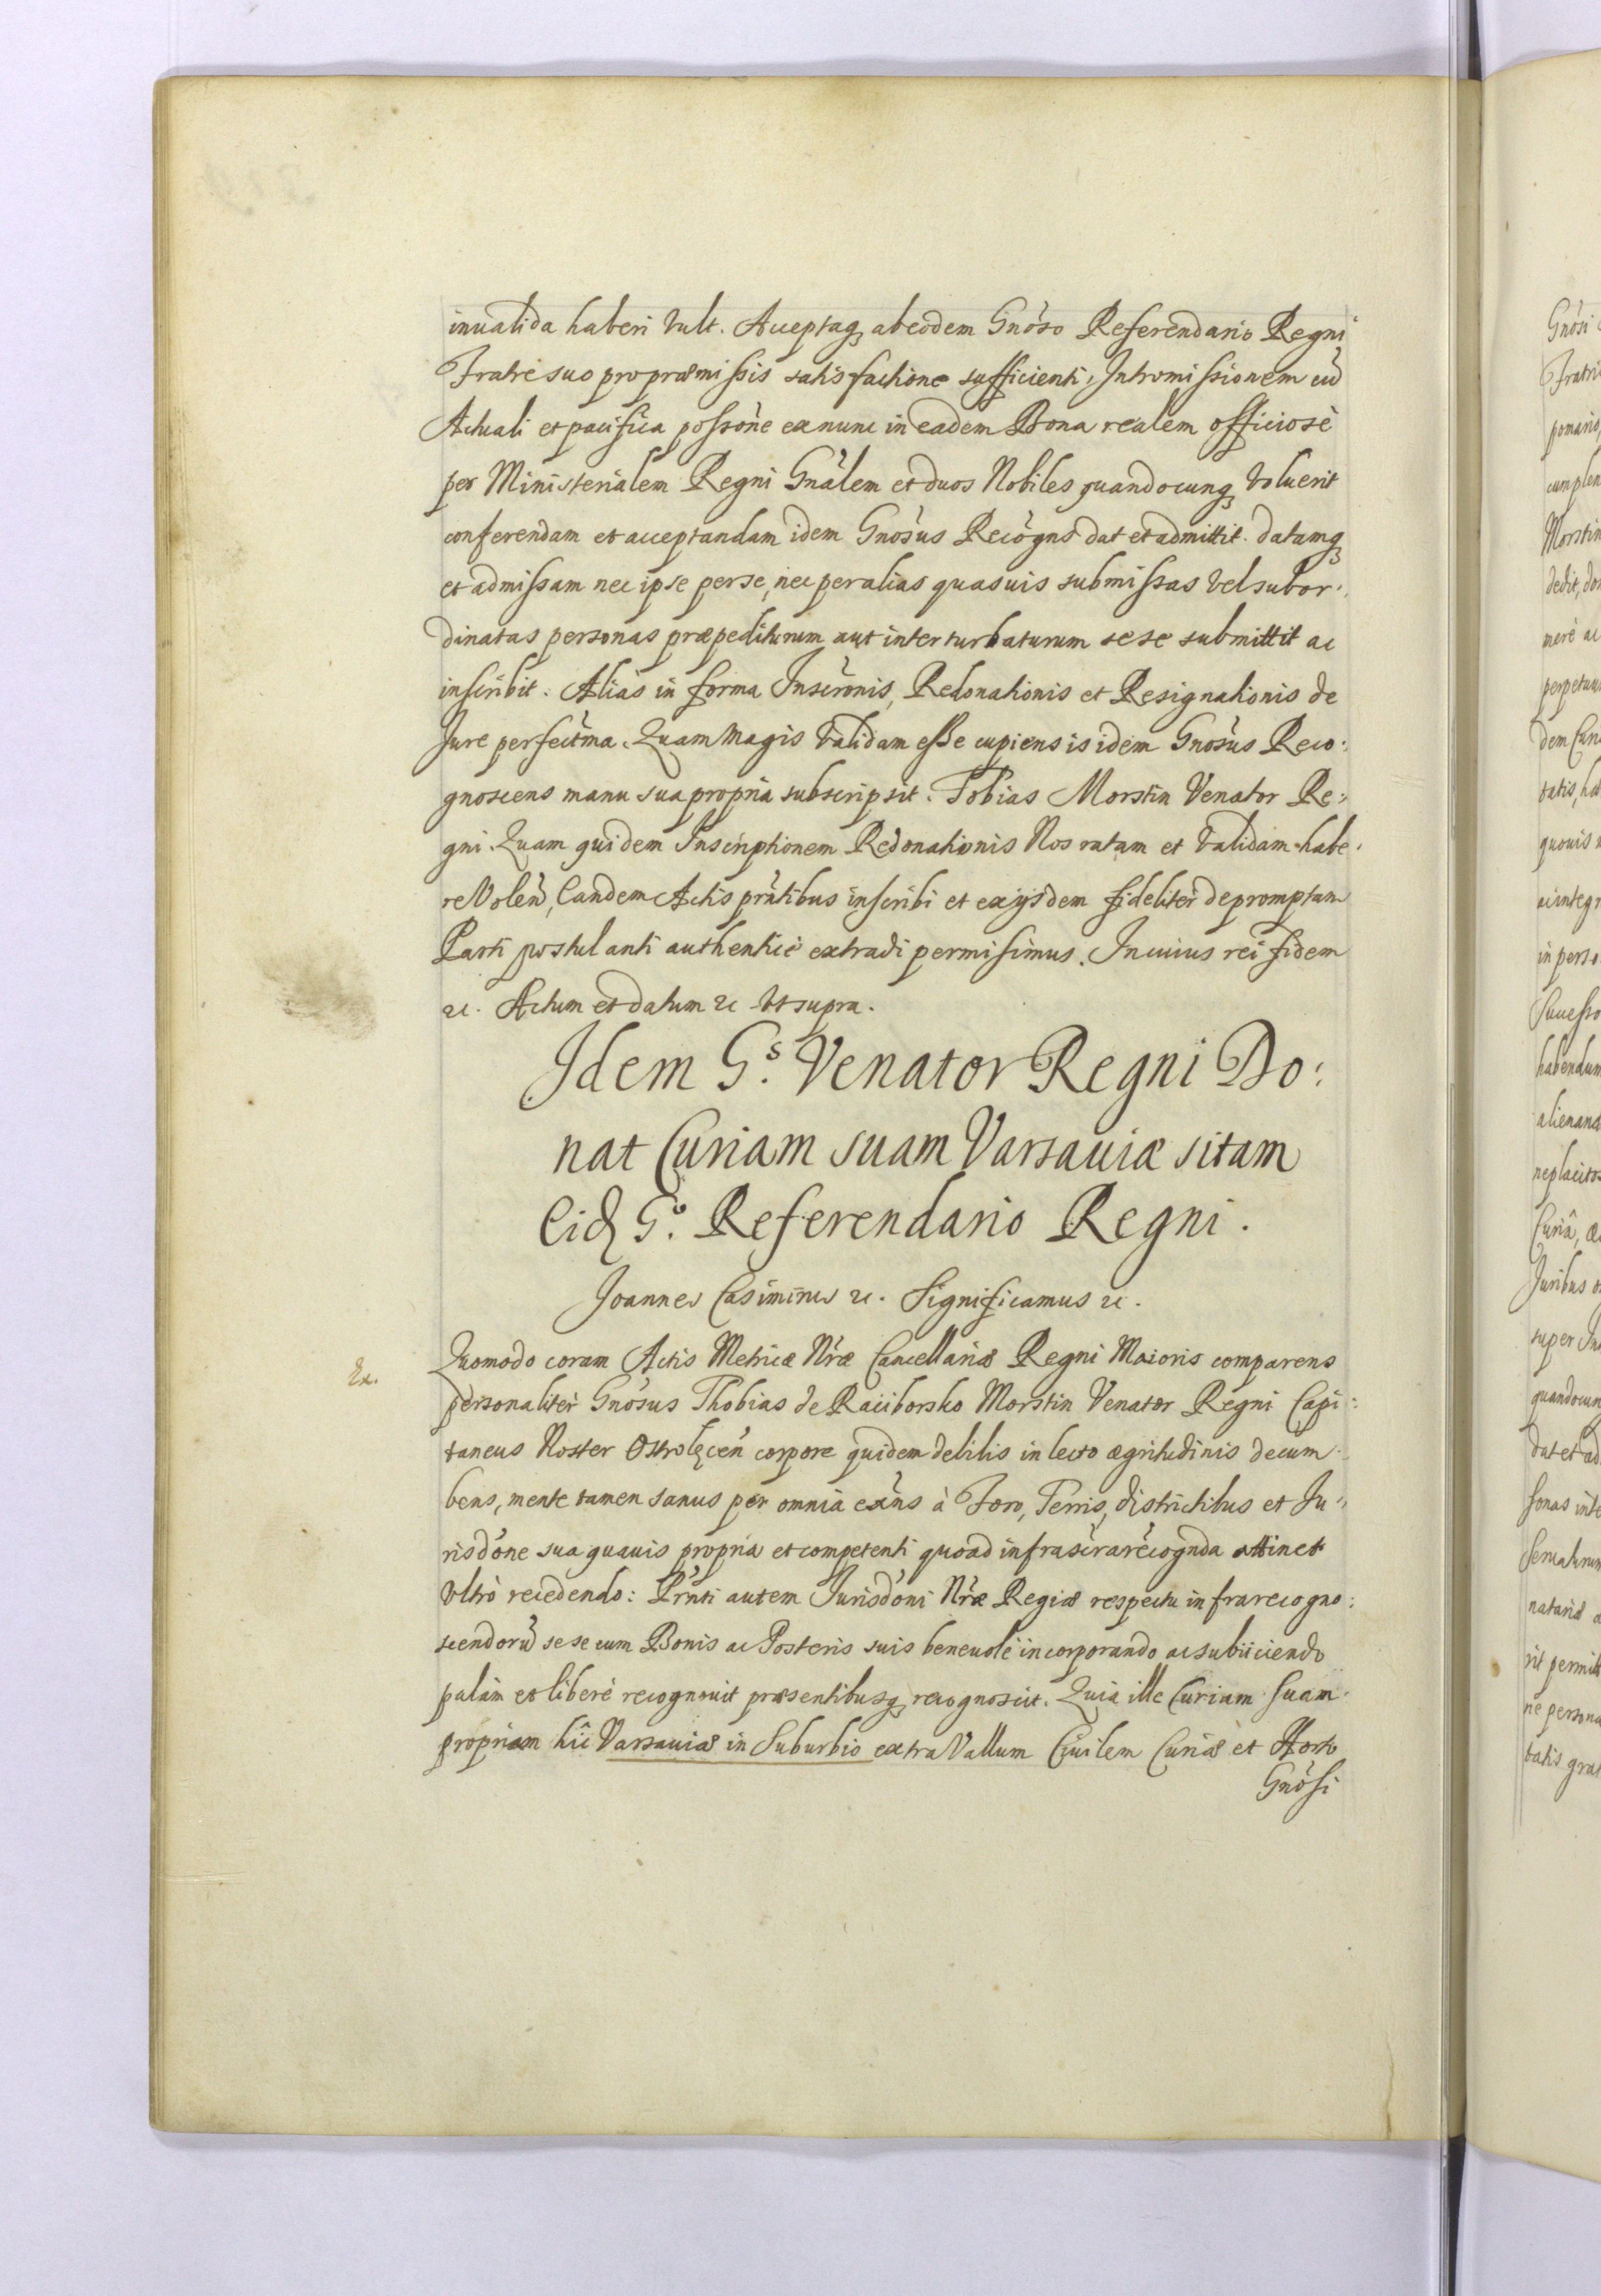 inualida haberi vult. Acceptaq, ab eodem Gnoso Referendario Regni
Fratre suo pro præmissis satisfactione sufficienti, Intromissionem cũ
Actuali et pacifica possone ex nunc in eadem Bona realem officiosè
per Ministerialem Regni Gnalem et duos Nobiles quandocunq, voluerit
conferendam et acceptandam idem Gnosus Recogns dat et admittit. datamq,
et admissam nec ipse per se, nec per alias quasuis submissas vel subor:
dinatas personas præpediturum aut interturbaturum sese submittit ac
inscribit. Aliàs in forma Inscronis, Redonationis et Resignationis de
Jure perfectma. Quam magis validam esse cupiens is idem Gnosus Reco:
gnoscens manu sua propria subscripsit. Tobias Morstin Venator Re:
gni. Quam quidem Inscriptionem Redonationis Nos ratam et validam habe:
re Volen, Eandem Actis prntibus inscribi et ex ijsdem fideliter depromptam
Parti postulanti authenticè extradi permisimus. In cuius rei fidem
&c. Actum et datum &c vt supra.
Idem Gs. Venator Regni Do:
nat Curiam suam Varsauiæ sitam
Eid Go. Referendario Regni.
Joannes Casimirus &c. Significamus &c.
Ex.
Quomodo coram Actis Metricæ Nræ Cancellariæ Regni Maioris comparens
personaliter Gnosus Thobias de Raciborsko Morstin Venator Regni Capi:
taneus Noster Ostrolęcen corpore quidem debilis in lecto ægritudinis decum:
bens, mente tamen sanus per omnia exns à Foro, Terris, districtibus et Ju:
risdone sua quauis propria et competenti quoad infrascra recognda attinet
vltrò recedendo: Prnti autem Jurisdoni Nræ Regiæ respectu infra recogno:
scendorũ sese cum Bonis ac Posteris suis beneuolè incorporando ac subiiciendo
palàm et liberè recognouit præsentibusq, recognoscit. Quia ille Curiam suam
propriam hîc Varsauiæ in Suburbio extra Vallum Ciuilem Curiæ et Horto
Gnosi